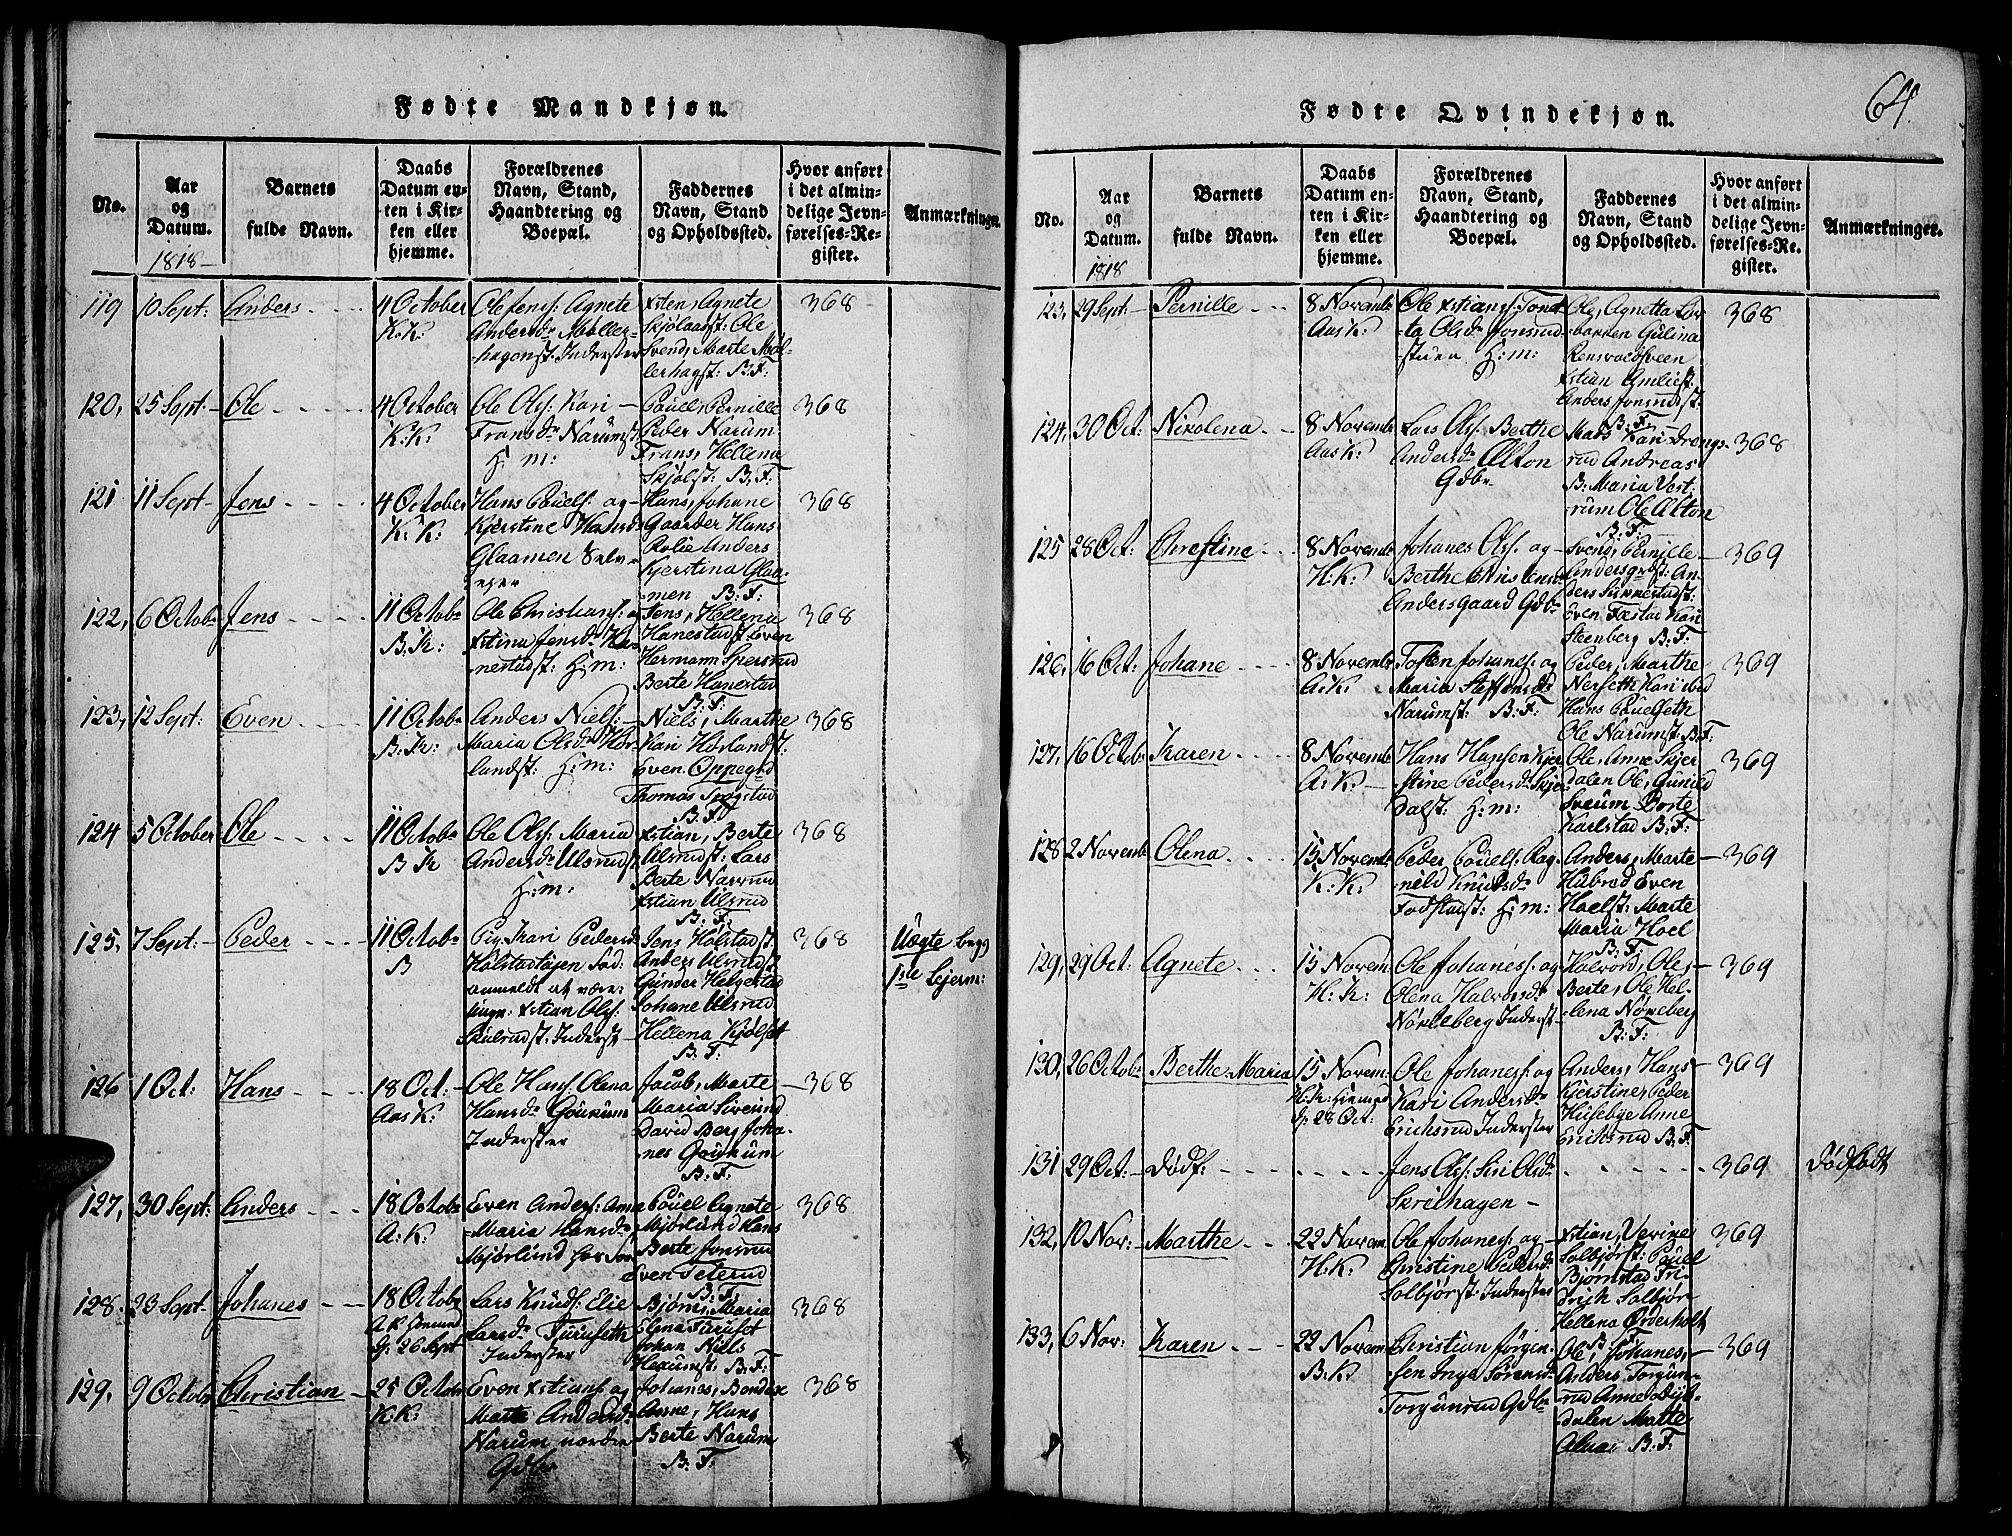 Fødte Mandkjøn.
No.
Aar
og
Datum.
1818
Barnets
fulde Navn.
Daabs
Datum en-
ten i Kir-
ken eller
hjemme.
Forældrenes
Navn, Stand,
Haandtering og
Boepæl.
Faddernes
Navn, Stand
og Opholdssted.
Hvor anført
i det almin-
delige Jevn-
førelses-Re-
gister.
Anmærkninger.
119 10 Sept: Anders
4 October
K:K:
Ole Jensf: Agnete
Andersdr Møller-
hagenst: Inderster
Xsten, Agnete
Skjølaast: Ole
Svend, Marte Møl-
lerhagst: B:F:
368
120, 25 Sept: Ole
4 October
K:K:
Ole Olsf: Kari
Fransdr Narumst
H:m:
Pouel, Pernille
Peder Narum
Frans, Hellena
Skjølst: B.F.
368
121 11 Sept Jens
4 October
K:K:
Hans Pouelsf: og
Kjerstine Hansd:
Glaamen Selv-
eger
Hans, Johane
Gaarder Hans
Rolie Anders
Kjerstina Glaa-
men B:F:
368
122, 6 Octobr Jens
11 Octobr
B:K:
Ole Christiansf: og
Xstina Jensdr Ha-
nestadst: H:m:
Jens, Hellena
Hanestadst Even
Hermann Spersrud
Berte Hanestad
B:F:
368
123, 12 Sept: Even
11 Octobr
B:K:
Anders Nielsf:
Maria Olsdr Hør-
landst: H:m:
Niels, Marthe
Kari Hørlandst:
Even Oppegrd
Thomas
B:F:
368
124 5 October Ole
11 Octobr
B K
Ole Olsf: Maria
Andersdr Ulsrudst
H:m:
Xstian, Berte
Ulsrudst: Lars
Berte Narrud
Xstian Ulsrud
B:F:
368
125, 7 Sept: Peder
11 Octobr
B
Pig: Kari Pedersd
Holstadløjen
anmeldt at være:
Ungk: Xstian Olsf:
Skulrudst: Inderst
Jens Holstadst
Anders Ulsrudst
Gunder Helgestad
Johane Ulsrud
Hellena Kjølset
B:F:
368
Uægte begg
1ste Lejerm:
126 1 Oct: Hans
18 Oct:
Aas K:
Ole Hansf: Olena
Hansdr Goukum
Inderster
Jacob, Marte
Maria Siverud
David Berg Joha-
nes Goukum
B:F:
368
127, 30 Sept: Anders
18 Octobr
A:K:
Even Andersf: Anne
Maria Hansdr
Mjørlund
Pouel Agnete
Mjørlund Hans
Berte Jonsrud
Even Teterud
B:F:
368
128. 23 Sept Johanes
18 Octobr
A K hiemmed
Dp. 26 Sept
Lars Knudsf: Elie
Larsdr Furuseth
Inderster
Bjørn, Maria
Elena Furuset
Johan Niels
Hexumst: B:F:
368
129, 9 Octobr Christian
25 Octobr
K:K:
Even Xstiansf: og
Marte Andersdr
Narum nordre
Gdbr
Johanes, Bondese
Anne, Hans
Berte Narum
B:F:
368
Fødte Qvindekjøn.
64.
No.
Aar
og
Datum.
1818
Barnets
fulde Navn.
Daabs
Datum en-
ten i Kir-
ken eller
hjemme.
Forældrenes
Navn, Stand,
Haandtering og
Boepæl.
Faddernes
Navn, Stand
og Opholdssted.
Hvor anført
i det almin-
delige Jevn-
førelses-Re-
gister.
Anmærkninger.
123, 29 Sept: Pernille
8 Novembr
Aas K:
Ole Xstiansf:
Olsdr Jonsrud-
stuen H:m:
Ole, Agnetta
Gulina
Rensvoldsveen
Xstian
Anders Jonsrudst:
B:F:
368
124, 30 Oct: Nikolena
8 Novembr
Aas K:
Lars Olsf: Berthe
Andersdr Alton
Gdbr
Mads Kari Drengs-
rud Andreas
B: Maria Vest-
rum Ole Alton
B:F:
368
125 28 Oct: Christine
8 Novembr
H:K:
Johanes Olsf: og
Berthe Christensd
Andersgaard Gdbr
Svend, Pernille
Andersgrdst: An-
ders Sukkestadst:
Even Fæstad Kari
Steenberg B:F:
369
126, 16 Oct: Johane
8 Novembr
A:K:
Tosten Johanesf: og
Maria Steffensdr
Narumst: B:F:
Peder, Marthe
Nerseth Kari ibid
Hans Pouelseth
Ole Narumst: B:F:
369
127, 16 Octobr Karen
8 Novembr
A:K:
Hans Hansen Kjer-
stine Pedersdr Skjer-
dalst: H:m:
Ole, Anne Skjer-
dalen Ole, Gunild
Sveum Dorte
Karlstad B:F:
369
128 2 Novembr Olena
15 Novembr
K:K:
Peder Pouelsf: Rag-
nild Knudsdr
Fodstadst: H:m:
Anders, Marte
Halvrud Even
Hoelst: Marte
Maria Hoel
B:F:
369
129, 29 Oct: Agnete
15 Novem:
H:K:
Ole Johanesf: og
Olena Halvorsdr
Nørleberg Inderst-
Halvord, Ole,
Berte, Ole Hel-
lena Nøreberg
B:F:
369
130, 26 Octobr Berthe Maria
15 Novem:
H:K: hiemmed
Dp. 28 Oct:
Ole Johanesf: og
Kari Andersdr
Erichsrud Inderster
Anders, Hans
Kjerstine, Peder
Husebye Anne
Erichsrud B:F:
369
131 29 Oct: Dødf:
Jens Olsf: Siri Olsdr
Skrelhagen
369
Dødfødt
132, 10 Nov: Marthe
22 Novem
H:K:
Ole Johanesf: og
Christine Pedersdr
Solbjørst: Inderster
Xstian, Verine
Solbjørst: Pouel
Bjørnstad Fri-
drich Solbjør
Hellena Orderholt
B:F:
369
133, 6 Nov: Karen
22 Novem
B:K:
Christian Jørgen-
sen Inge Sørensdr
Torgunrud Gdbr
Ole, Johanes,
Anders Torgun-
rud Anne
dalen Matte
Alnæs B:F:
369